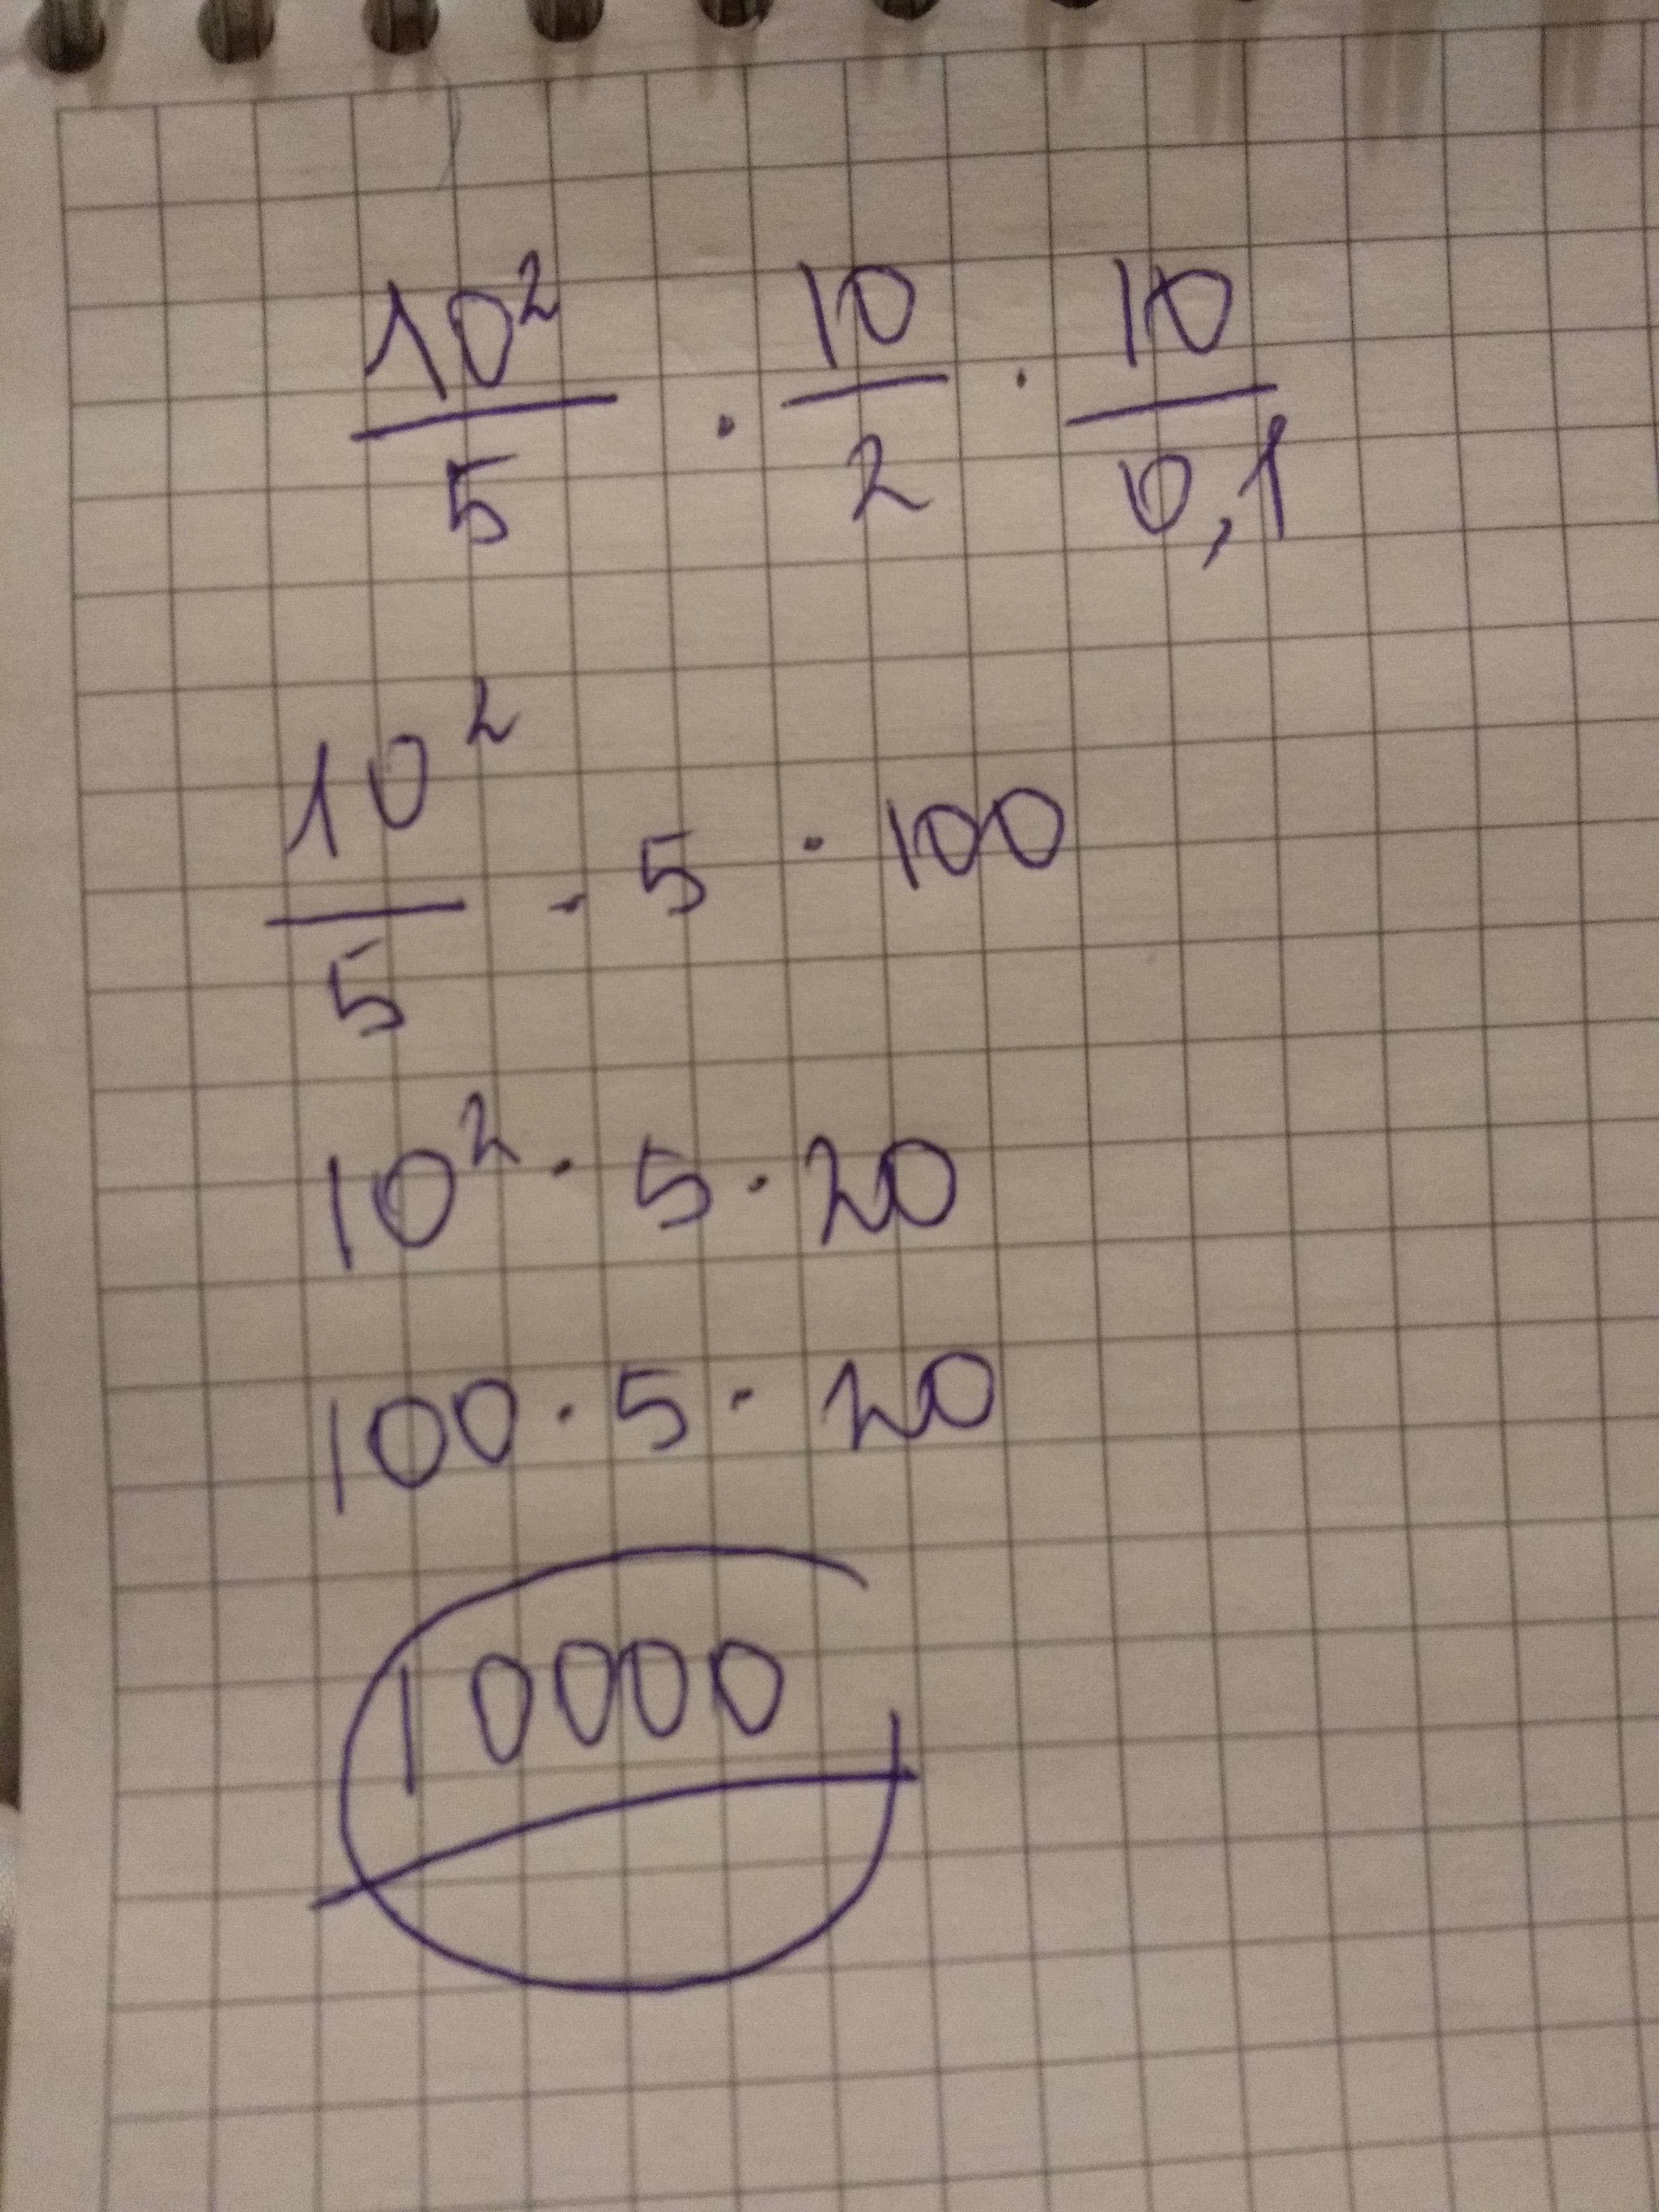 10²/5 · 10/2 · 10/0,1
10²/5 · 5 · 100
10² · 5 · 20
100 · 5 · 20
10000